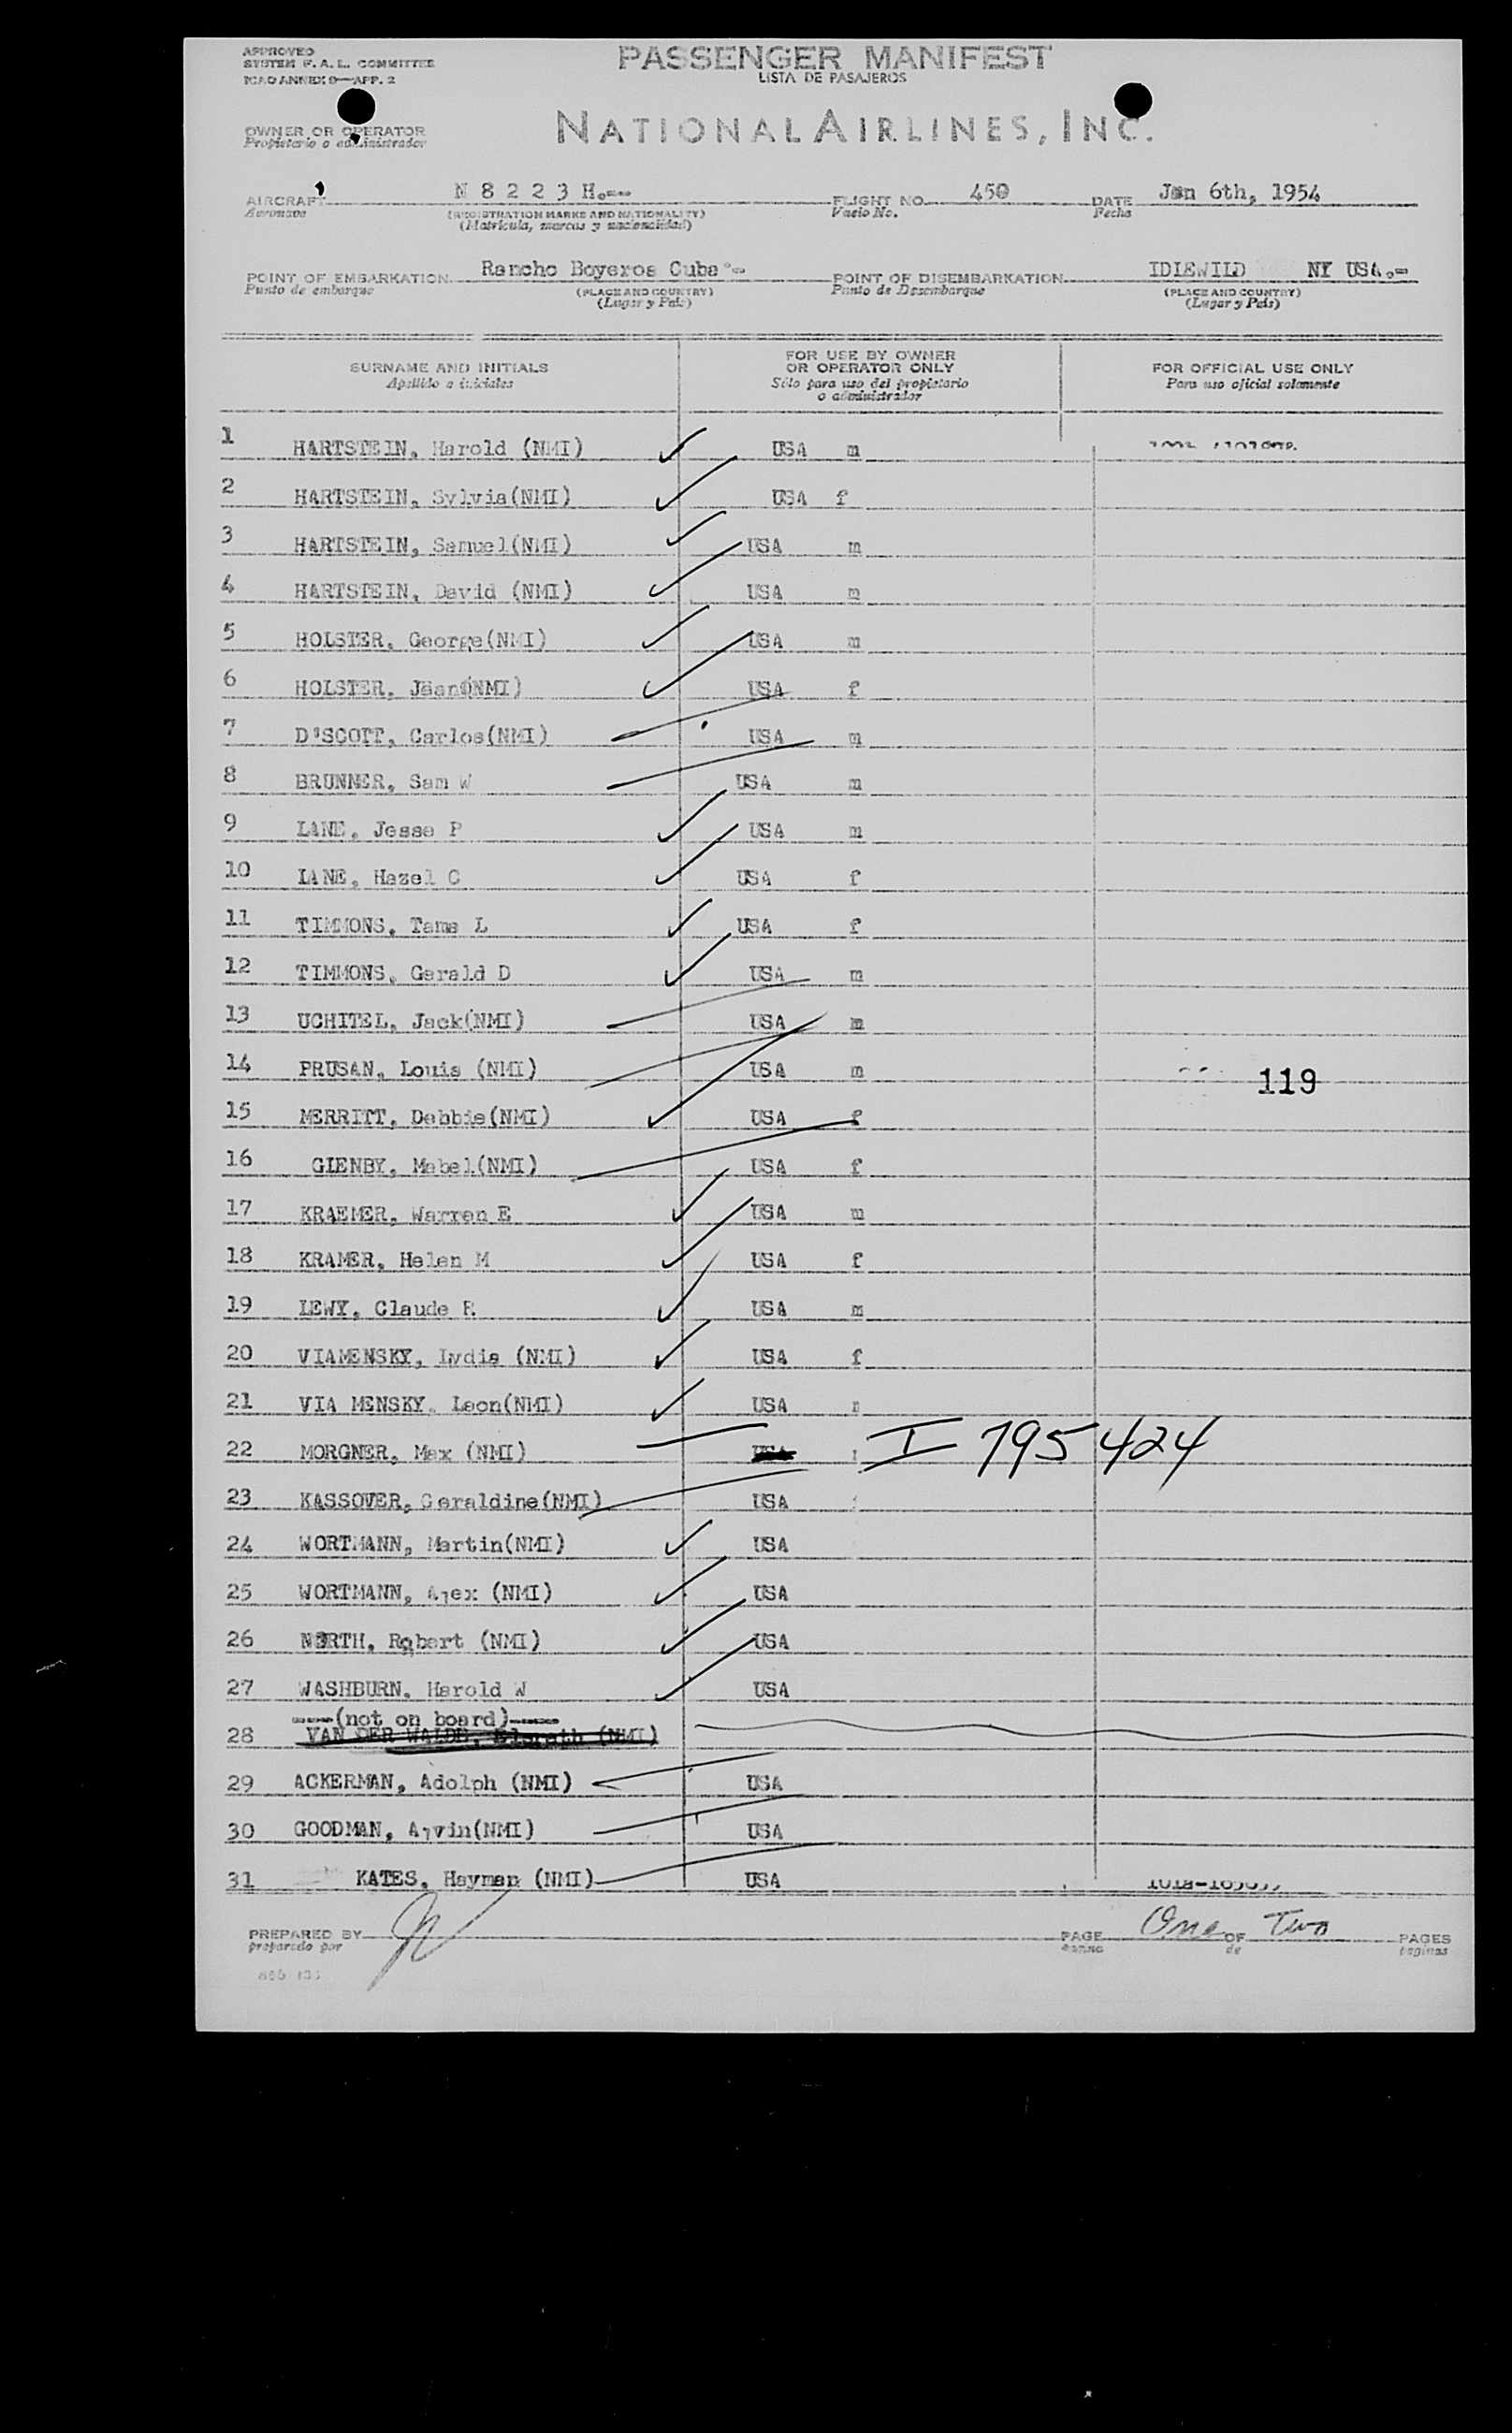 APPROVED
SYSTEM F. A. L. COMMITTEE
ICAO ANNEX 9—APP. 2
PASSENGER MANIFEST
LISTA DE PASAJEROS
OWNER OR OPERATOR
Propietario o administrador
NATIONAL AIRLINES, INC.
AIRCRAFT N 8 2 2 3 H.=-- FLIGHT NO. 450 DATE Jan 6th, 1954
Aeronave (REGISTRATION MARKS AND NATIONALITY) Vuelo No. Fecha
(Matrícula, marcas y nacionalidad)
POINT OF EMBARKATION Rancho Boyeros Cuba POINT OF DISEMBARKATION IDLEWILD NY USA.=
Punto de embarque (PLACE AND COUNTRY) Punto de Desembarque (PLACE AND COUNTRY)
(Lugar y País) (Lugar y País)
SURNAME AND INITIALS FOR USE BY OWNER OR OPERATOR ONLY FOR OFFICIAL USE ONLY
Apellido e iniciales Sólo para uso del propietario o administrador Para uso oficial solamente
1 HARTSTEIN, Harold (NMI) USA m
2 HARTSTEIN, Sylvia(NMI) USA f
3 HARTSTEIN, Samuel(NMI) USA m
4 HARTSTEIN, David (NMI) USA m
5 HOLSTER, George(NMI) USA m
6 HOLSTER, Jean(NMI) USA f
7 D'SCOTT, Carlos(NMI) USA m
8 BRUNNER, Sam W USA m
9 LANE, Jesse P USA m
10 LANE, Hazel C USA f
11 TIMMONS, Tama L USA f
12 TIMMONS, Gerald D USA m
13 UCHITEL, Jack(NMI) USA m
14 PRUSAN, Louis (NMI) USA m 119
15 MERRITT, Debbie(NMI) USA f
16 GLENBY, Mabel(NMI) USA f
17 KRAEMER, Warren E USA m
18 KRAMER, Helen M USA f
19 LEWY, Claude R USA m
20 VIAMENSKY, Lydia (NMI) USA f
21 VIA MENSKY, Leon(NMI) USA m
22 MORGNER, Max (NMI) USA I 795424
23 KASSOVER, Geraldine(NMI) USA
24 WORTMANN, Martin(NMI) USA
25 WORTMANN, Alex (NMI) USA
26 NORTH, Robert (NMI) USA
27 WASHBURN, Harold W USA
----(not on board)-----
28 VAN DER WALDE, (NMI)
29 ACKERMAN, Adolph (NMI) USA
30 GOODMAN, Alvin(NMI) USA
31 KATES, Hayman (NMI) USA
PREPARED BY PAGE One OF Two PAGES
preparado por de paginas